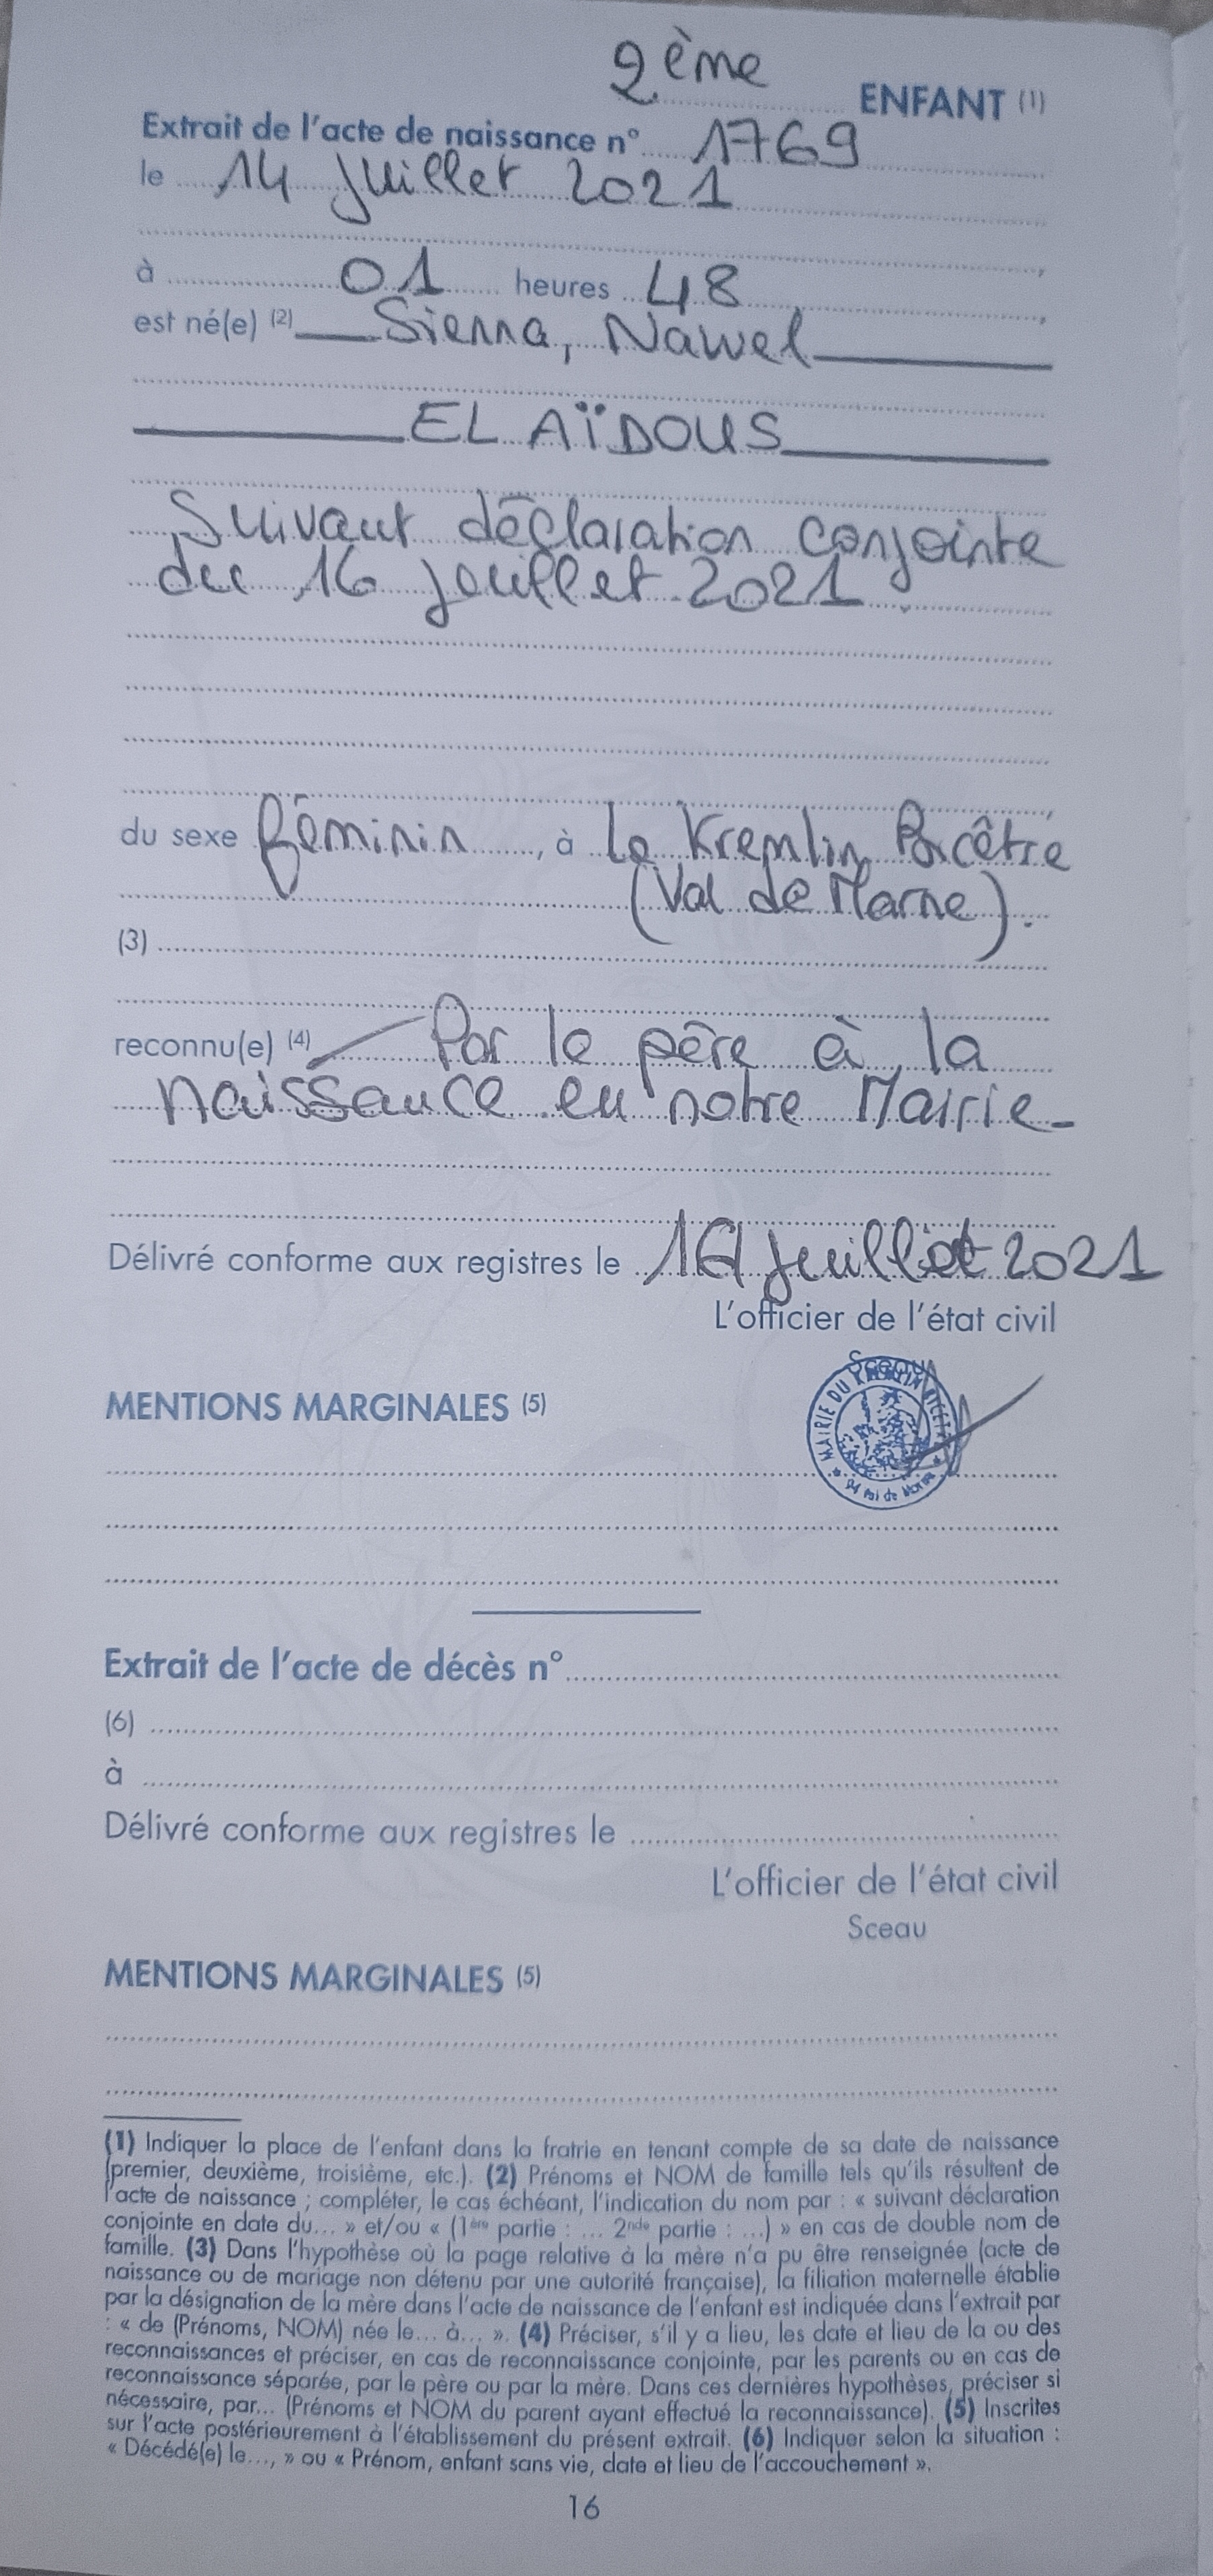 2ème ENFANT (1)
Extrait de l'acte de naissance n° 1769
le 14 juillet 2021
à 01 heures 48
est né(e) (2) Sienna, Nawel
EL AÏDOUS
Suivant déclaration conjointe
du 16 juillet 2021
du sexe féminin, à Le Kremlin Bicêtre
(Val de Marne).
(3)
reconnu(e) (4) Par le père à la
naissance en notre Mairie-
Délivré conforme aux registres le 16 juillet 2021
L'officier de l'état civil
Sceau
MAIRIE DU KREMLIN BICETRE
94 Val de Marne
MENTIONS MARGINALES (5)
Extrait de l'acte de décès n°
(6)
à
Délivré conforme aux registres le
L'officier de l'état civil
Sceau
MENTIONS MARGINALES (5)
(1) Indiquer la place de l'enfant dans la fratrie en tenant compte de sa date de naissance
(premier, deuxième, troisième, etc.). (2) Prénoms et NOM de famille tels qu'ils résultent de
l'acte de naissance ; compléter, le cas échéant, l'indication du nom par : « suivant déclaration
conjointe en date du... » et/ou « (1ère partie : ... 2nde partie : ...) » en cas de double nom de
famille. (3) Dans l'hypothèse où la page relative à la mère n'a pu être renseignée (acte de
naissance ou de mariage non détenu par une autorité française), la filiation maternelle établie
par la désignation de la mère dans l'acte de naissance de l'enfant est indiquée dans l'extrait par
: « de (Prénoms, NOM) née le... à... ». (4) Préciser, s'il y a lieu, les date et lieu de la ou des
reconnaissances et préciser, en cas de reconnaissance conjointe, par les parents ou en cas de
reconnaissance séparée, par le père ou par la mère. Dans ces dernières hypothèses, préciser si
nécessaire, par... (Prénoms et NOM du parent ayant effectué la reconnaissance). (5) Inscrites
sur l'acte postérieurement à l'établissement du présent extrait. (6) Indiquer selon la situation :
« Décédé(e) le..., » ou « Prénom, enfant sans vie, date et lieu de l'accouchement ».
16